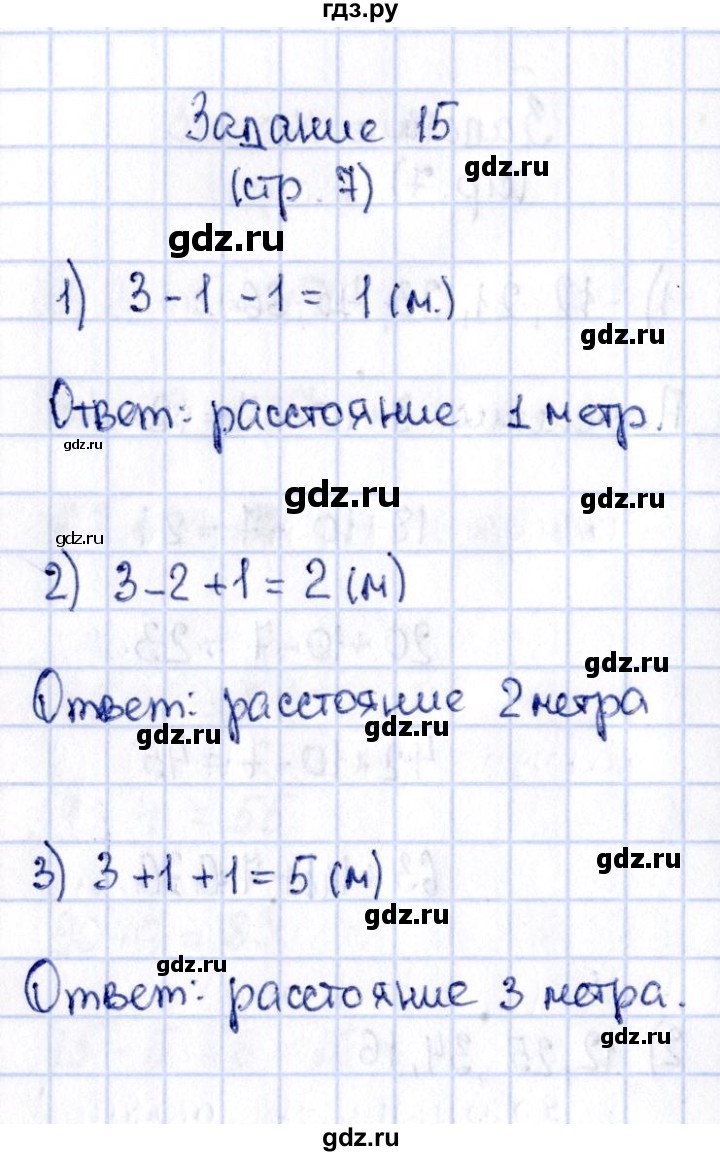 гдз.ру
Задание 15
gdz.ru
(стр. 7)
gdz.ru
1) 3 - 1 - 1 = 1 (м.)
gdz.ru
Ответ: расстояние 1 метр.
gdz.ru
gdz.ru
gdz.ru
gdz.ru
2) 3 - 2 + 1 = 2 (м)
gdz.ru
Ответ: расстояние 2 метра
gdz.ru
gdz.ru
3) 3 + 1 + 1 = 5 (м)
gdz.ru
gdz.ru
gdz.ru
Ответ: расстояние 3 метра.
gdz.ru
gdz.ru